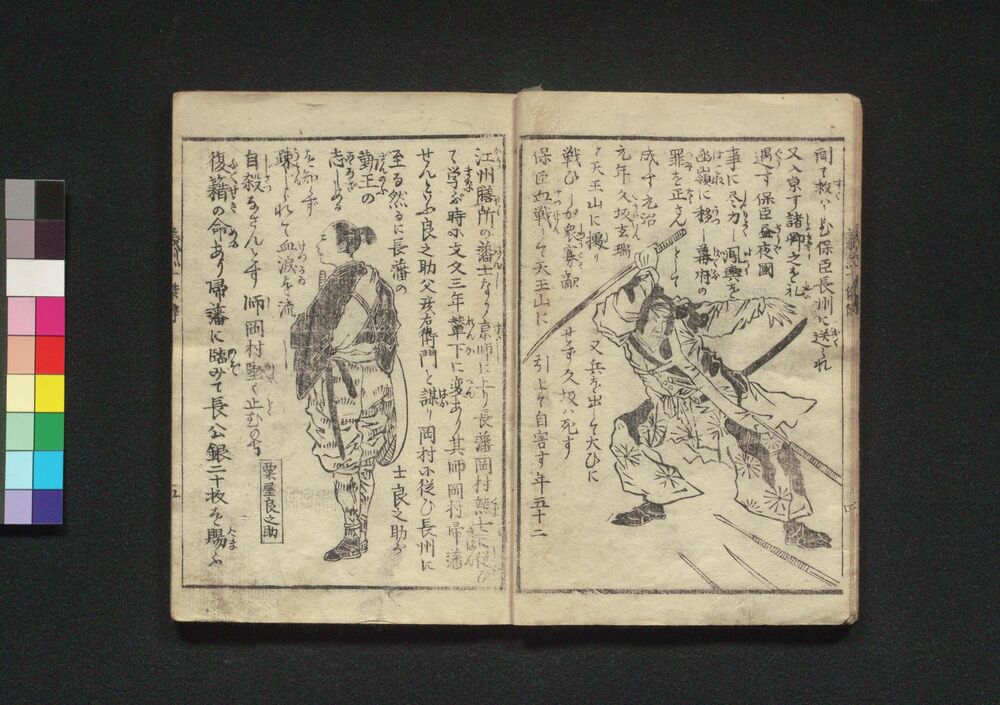 聞て救ハむ保臣長州に送られ
又入京す諸卿之を礼
遇す保臣昼夜國
事に尽力し
函嶺に移し幕府の
罪を正さんとして
成らす元治
元年久坂玄瑞
と天王山に據り
戦ひしが衆寡敵
せず久坂ハ死す
保臣血戦して天王山に
引上て自害す年五十二
江州膳所の藩士なり京師に上り長藩岡村熊士に従ひ
て学ぶ時に文久三年輦下に変あり其師岡村帰藩
せんといふ良之助父彦右衛門と謀り岡村に従ひ長州に
至る然るに長藩の
士良之助が
勤王の
志しある
を知らず
疎しられて血涙を流し
自殺なさんとす師岡村堅く止む
復籍の命あり帰藩に臨みて長公銀二十枚を賜ふ
粟屋良之助
五
四